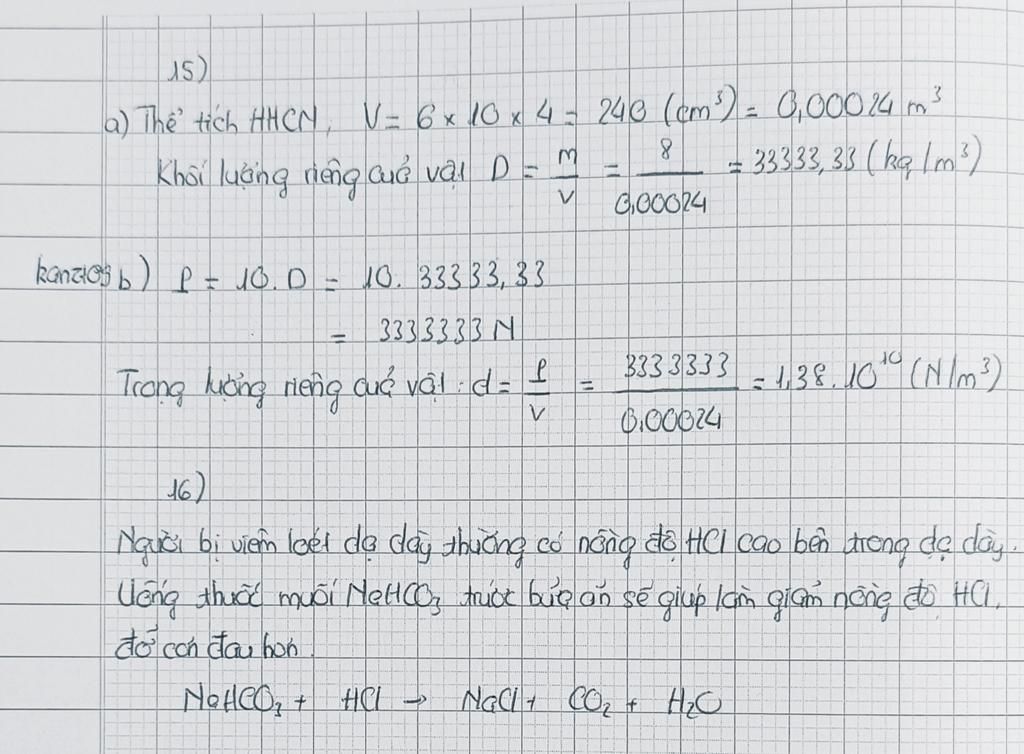 15)
a) Thể tích HHCN, V = 6 x 10 x 4 = 240 (cm³) = 0,00024 m³
Khối lượng riêng cuả vật D = m/V = 8/0,00024 = 33333,33 (kg/m³)
b) P = 10.D = 10. 33333,33
= 3333333 N
Trọng lượng riêng cuả vật: d = P/V = 3333333/0,00024 = 1,38.10¹⁰ (N/m³)
16)
Người bị viêm loét dạ dày thường có nồng độ HCl cao bên trong dạ dày.
Uống thuốc muối NaHCO₃ trước bữa ăn sẽ giúp làm giảm nồng độ HCl,
đỡ cơn đau hơn.
NaHCO₃ + HCl → NaCl + CO₂ + H₂O